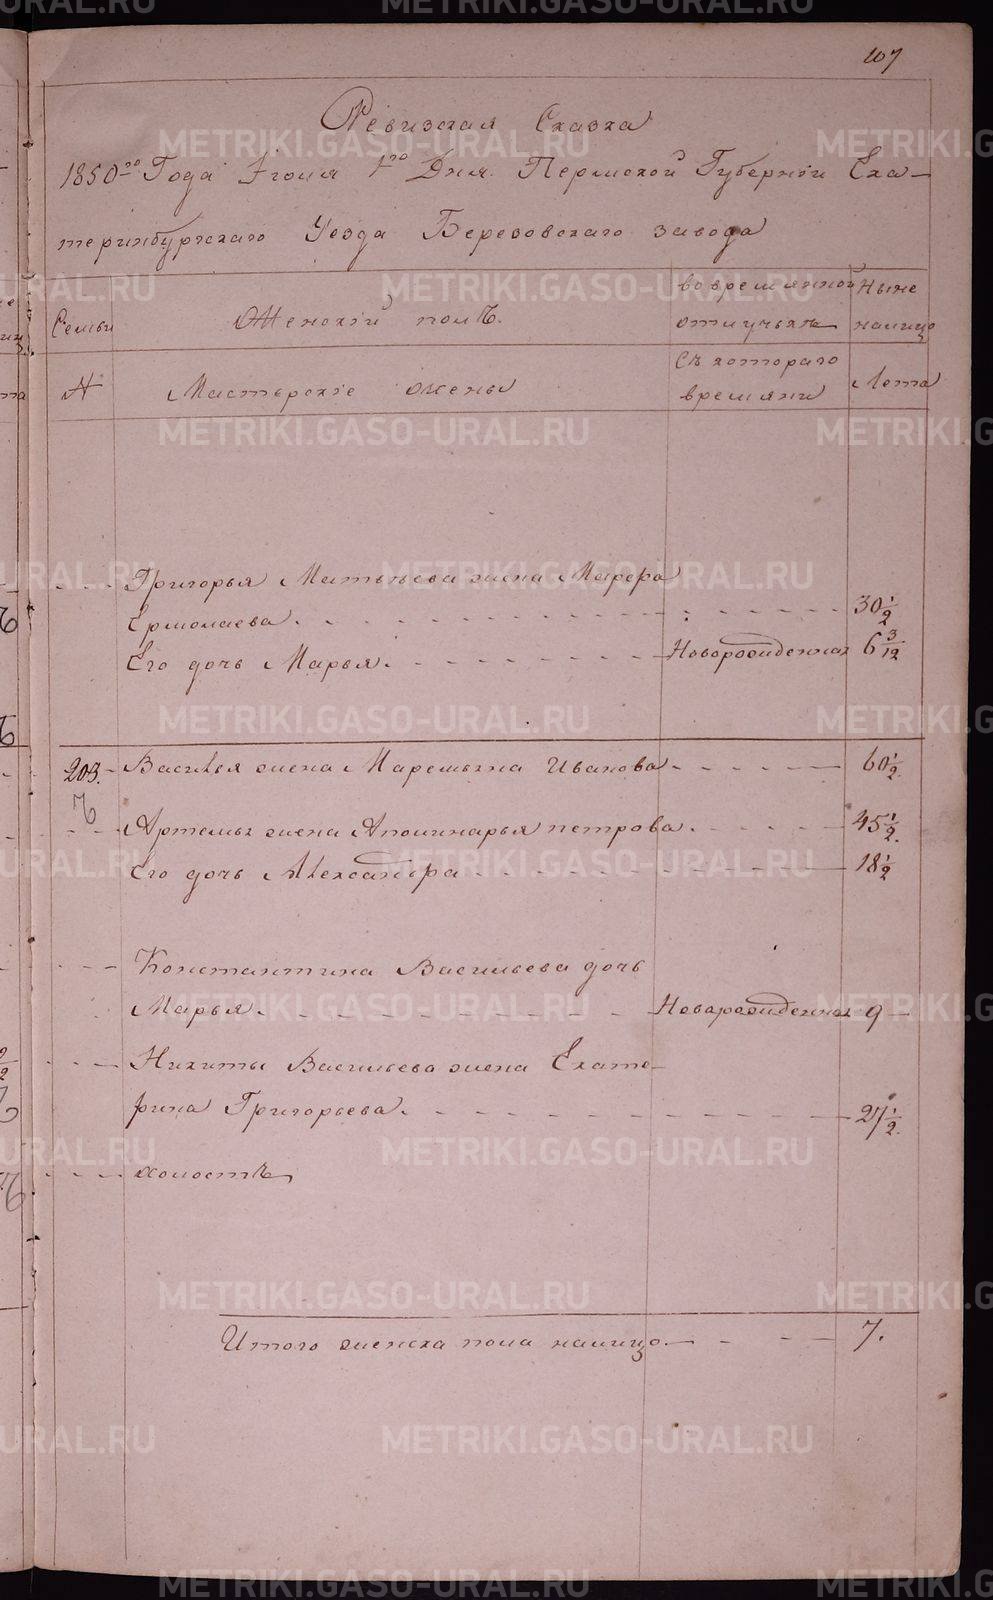 107
Ревизская Сказка
1850го Года Iюля 1го Дня. Пермской Губернiи Ека-
теринбургскаго Уезда Березовскаго завода
Семьи
Женскiй полъ.
во временной отлучькъ
Ныне налицо
№
Мастерскiе жены
Съ котораго времяни
Лета
Григорья Матьвева жена Марфа
Ермолаева. 30 1/2
Его дочь Марья. Новорожденная 6 3/12
203. Василья жена Маремьяна Иванова 60 1/2.
Артемья жена Аполинарья петрова. 45 1/2.
Его дочь Александра 18 1/2
Константина Васильева дочь
Марья. Новорожденная 9
Никиты Васильева жена Екате-
рина Григорьева. 27 1/2.
холостъ
Итого женска пола налицо. 7.
METRIKI.GASO-URAL.RU